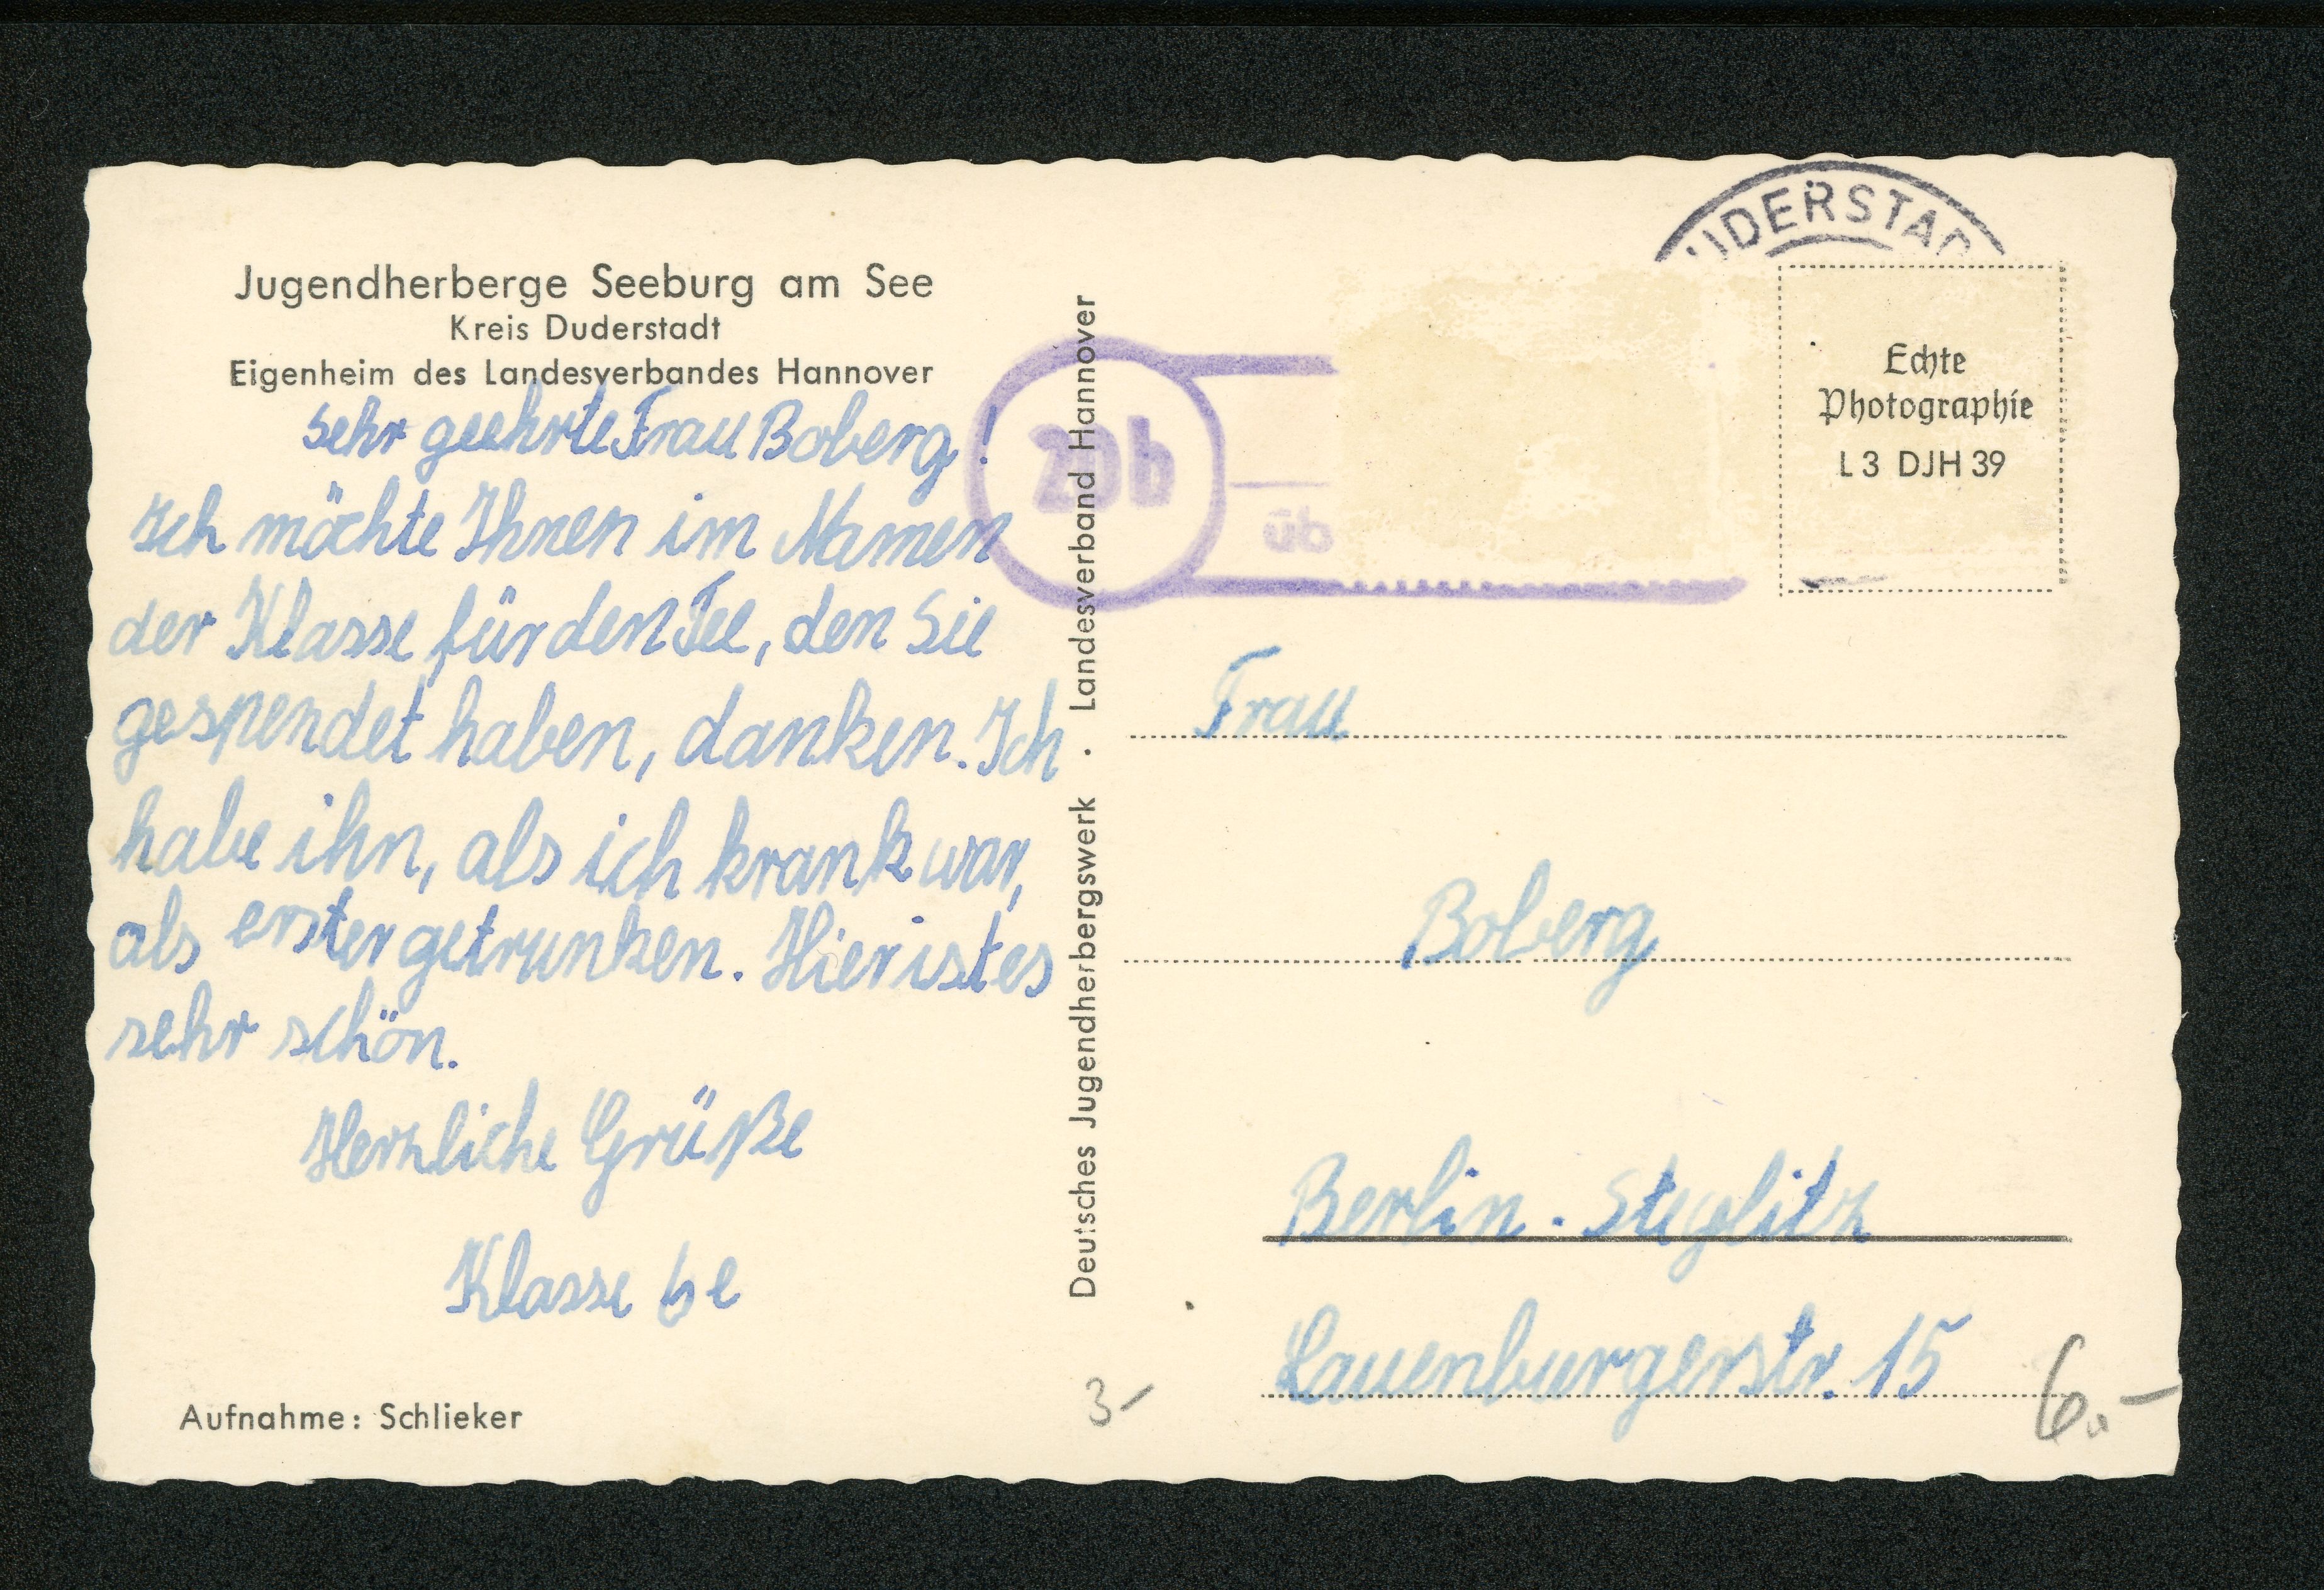 Jugendherberge Seeburg am See
Kreis Duderstadt
Eigenheim des Landesverbandes Hannover
Sehr geehrte Frau Boberg!
Ich möchte Ihnen im Namen
der Klasse für den Tee, den Sie
gespendet haben, danken. Ich
habe ihn, als ich krank war,
als erster getrunken. Hier ist es
sehr schön.
Herzliche Grüße
Klasse 6e
Aufnahme: Schlieker
Deutsches Jugendherbergswerk · Landesverband Hannover
3-
UDERSTAD
20b
üb
Echte
Photographie
L 3 DJH 39
Frau
Boberg
Berlin-Steglitz
Lauenburgerstr. 15
6.-